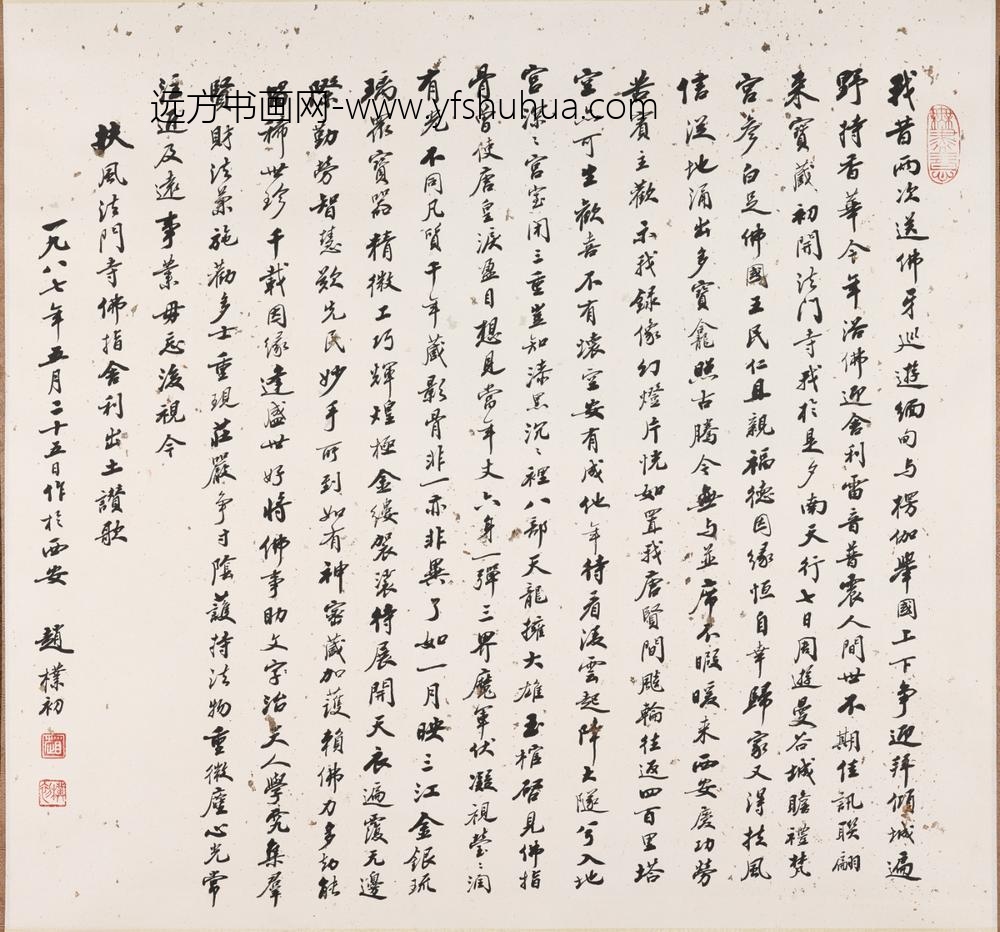 我昔兩次送佛牙巡遊緬甸与楞伽舉國上下爭迎拜傾城遍
野持香華今年浴佛迎舍利雷音普震人間世不期佳訊联翩
来寶藏初開法门寺我於是夕南天行七日周遊曼谷城瞻禮梵
宮參白足佛國王民仁且親福德因缘恒自幸歸家又得扶風
信従地涌出多寶龕照古騰今無与並席不暇暖来西安慶功勞
苦賓主歡示我録像幻燈片恍如置我唐賢間飈輪往返四百里塔
空可生歡喜不有壞空安有成他年待看凌雲起降大隧兮入地
宮深〻宮室闭三重豈知漆黑沉〻裡八部天龍擁大雄玉棺啓見佛指
骨曾使唐皇淚盈目想見當年丈六身一彈三界魔軍伏凝視瑩〻润
有光不同凡質千年藏影骨非一亦非異了如一月映三江金銀琉
璃眾寶器精微工巧輝煌極金縷袈裟待展開天衣遍覆无邊
際勤勞智慧歎先民妙手所到如有神密藏加護賴佛力多劫能
留稀世珍千載因缘逢盛世好將佛事助文字治文人學究集群
賢財法兼施勸多士重現莊嚴爭寸陰護持法物重微塵心光常
注近及遠事業毋忘後視今
扶風法門寺佛指舍利出土讚歌
一九八七年五月二十五日作於西安
趙樸初
远方书画网-www.yfshuhua.com